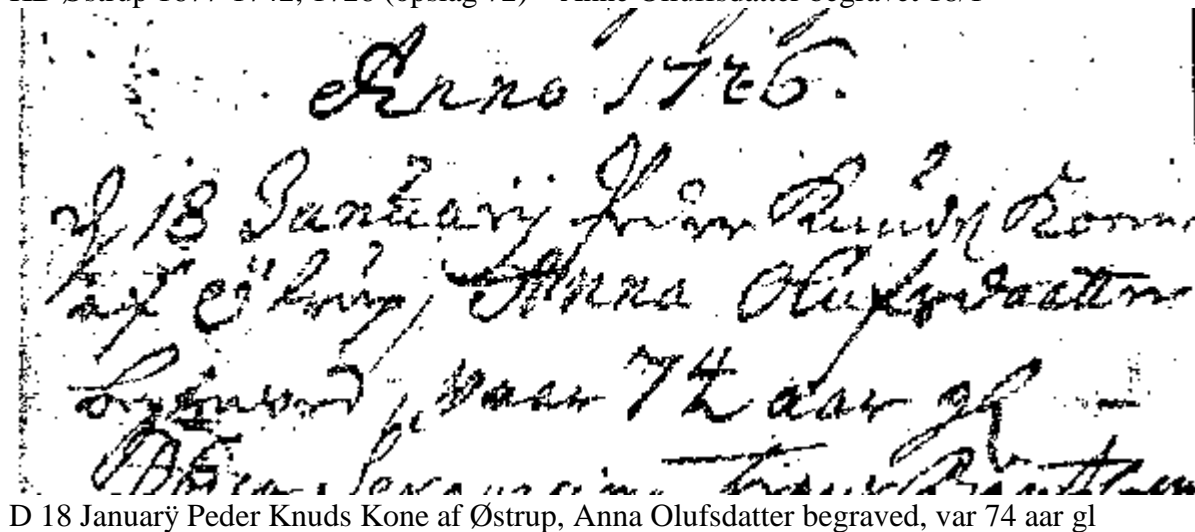 Anno 1726.
D 18 Januarÿ Peder Knuds Kone
af Østrup, Anna Olufsdatter
begraved, vaar 74 aar gl
D 18 Januarÿ Peder Knuds Kone af Østrup, Anna Olufsdatter begraved, var 74 aar gl